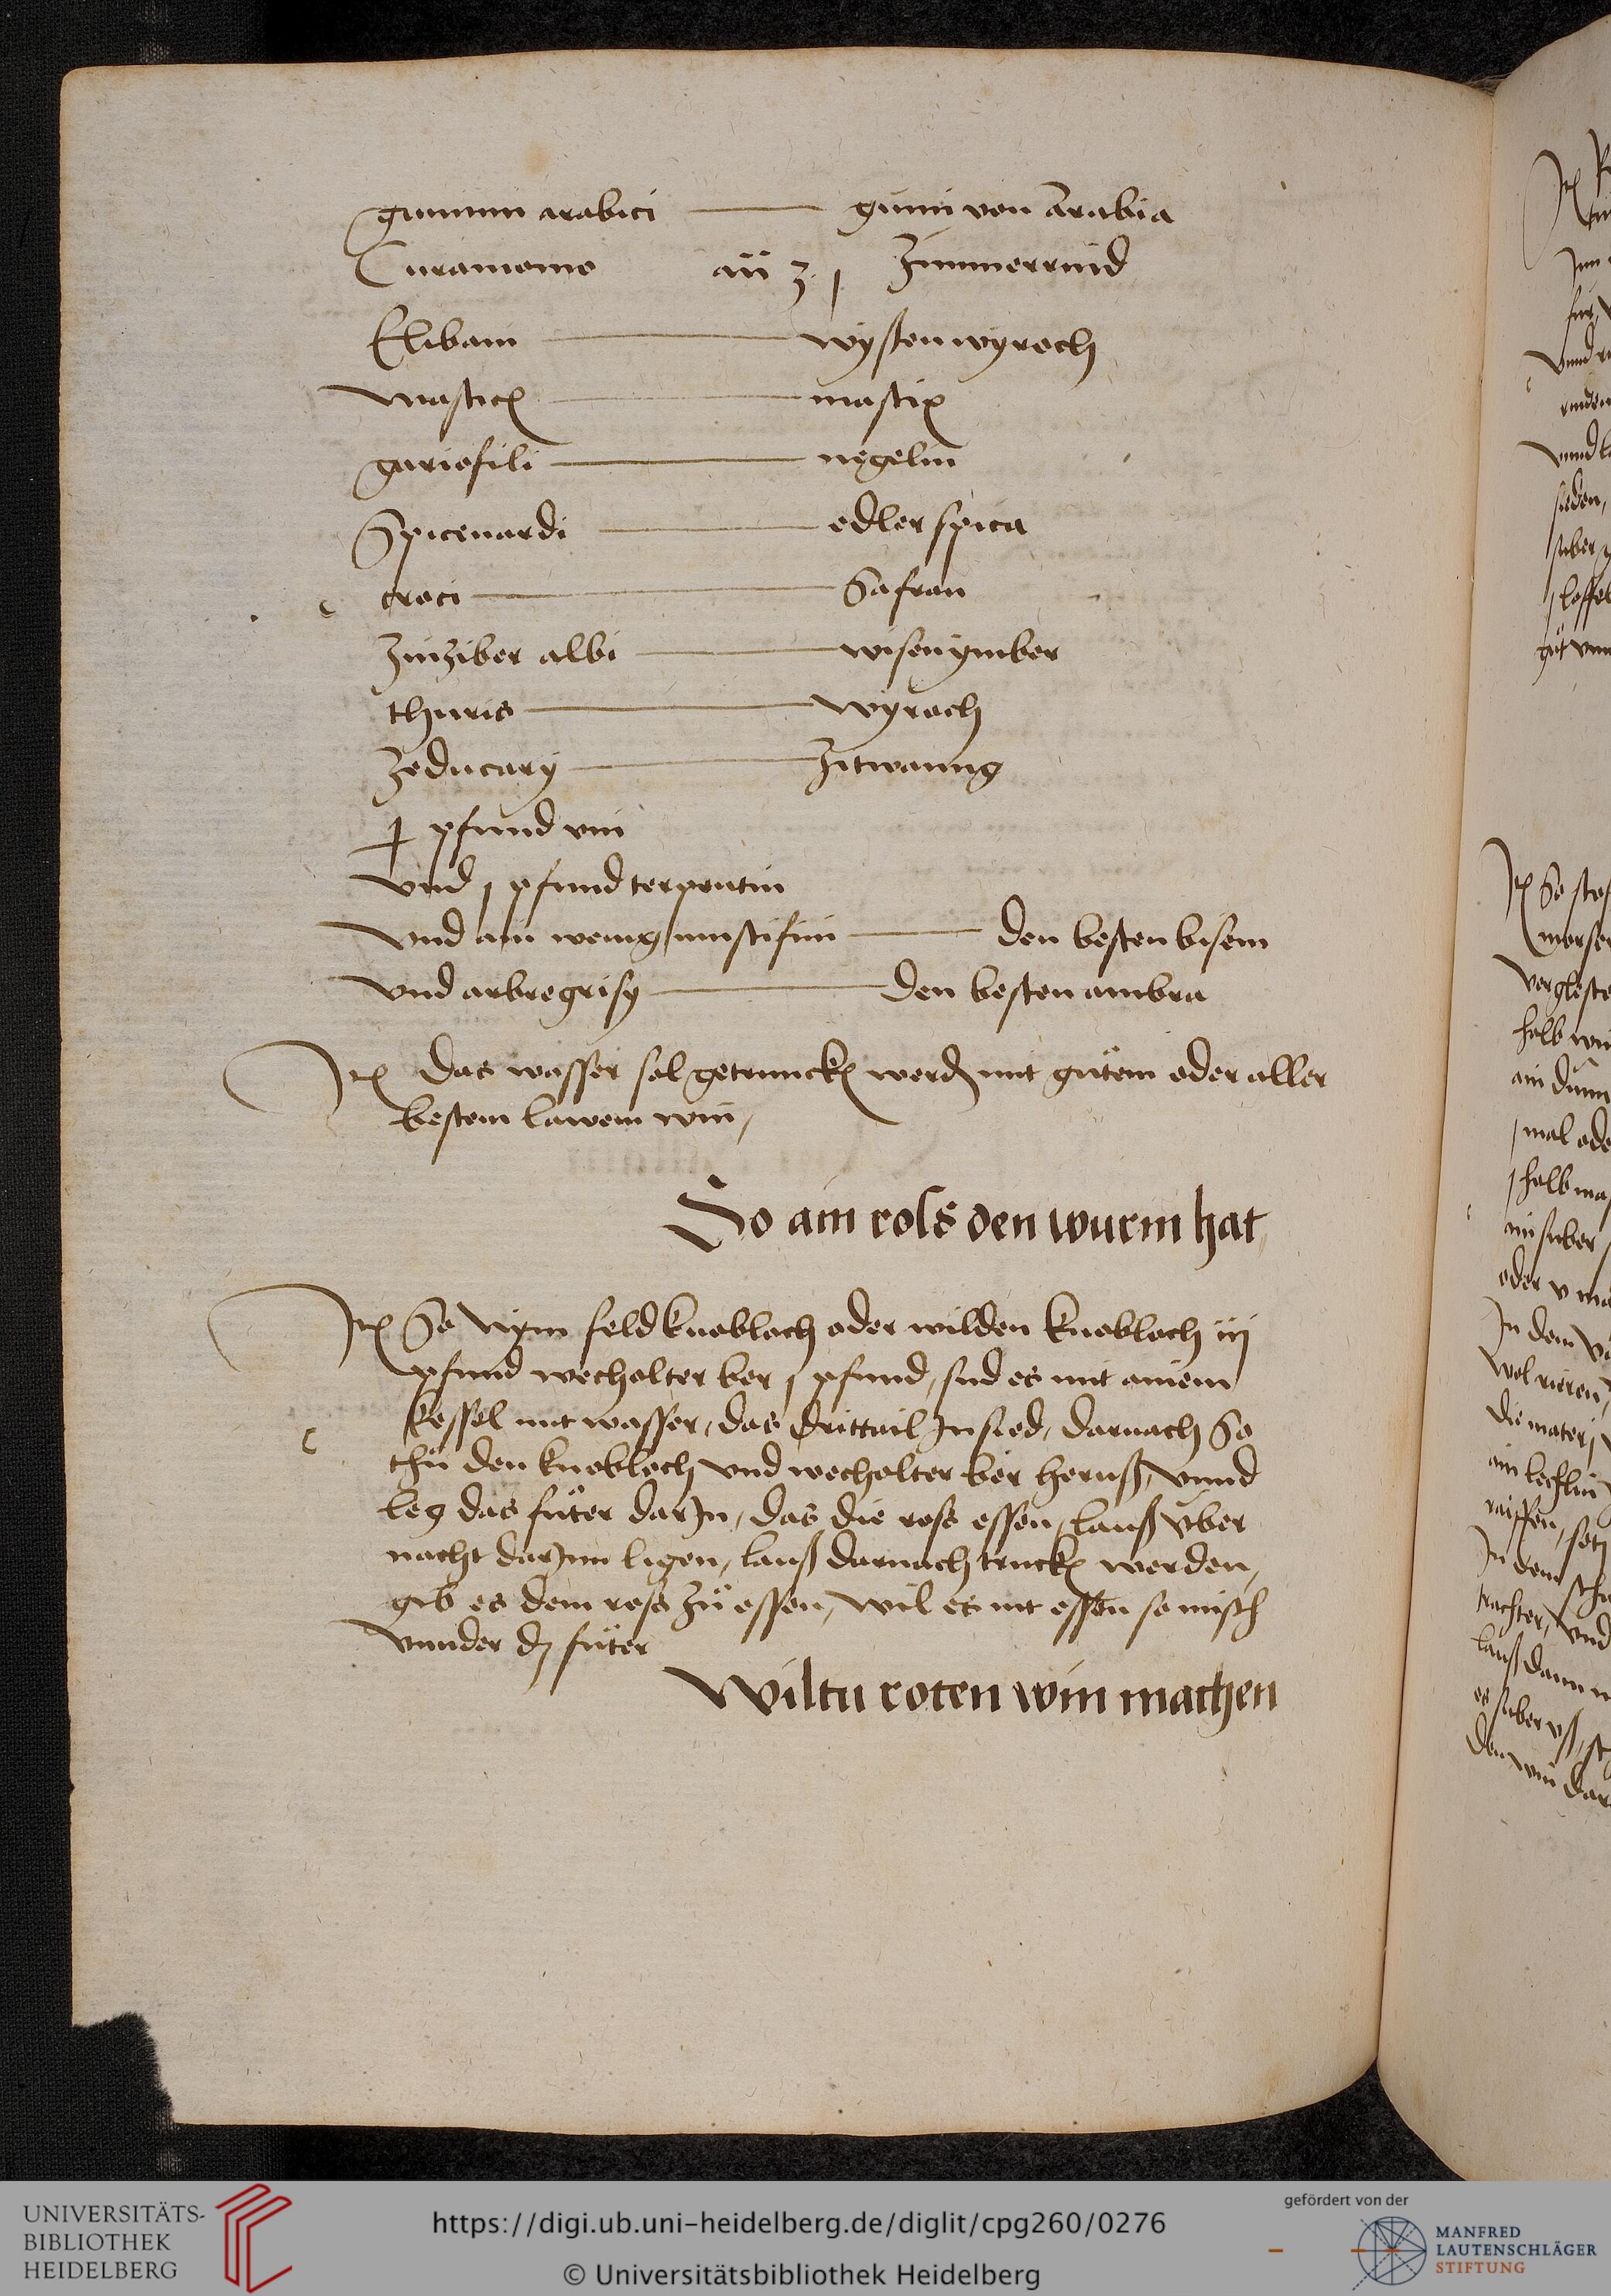 gummi arabici — gumi von Arabia
Cinamomo añ ʒ j Zimmerrind
Elibani — wyssen wyroch
mastick — mastix
gariofili — negelin
Spicenardi — edler spica
croci — Safran
Zinziber albi — wisen ymber
thuris — wyroch
Zeducary — Zitwanng
pfund vin
vnd j pfund terpentin
vnd ain wenig — den besten bisem
vnd arbregrisy — den besten ambra
Itē das wasser sol getrunckē werdē mit gůtem oder aller
bestem lawem win,
So ain ross den wurm hat
Itē So Nym feld knobloch oder wilden knobloch iij
pfund wecholter ber j pfund, sud es mit ainem
kessel mit wasser, das drittail Insied, darnach So
thů den knobloch vnd wecholter ber heruß, vnnd
leg das fůter darIn, das die ross essen, lauß vber
nacht darInn ligen, lauß darnach truckē werden,
gib es dem ross zů essen, wil es nit essen so misch
vnnder dz fůter
Wiltu roten win machen
UNIVERSITÄTS-
BIBLIOTHEK
HEIDELBERG
https://digi.ub.uni-heidelberg.de/diglit/cpg260/0276
© Universitätsbibliothek Heidelberg
gefördert von der
MANFRED
LAUTENSCHLÄGER
STIFTUNG